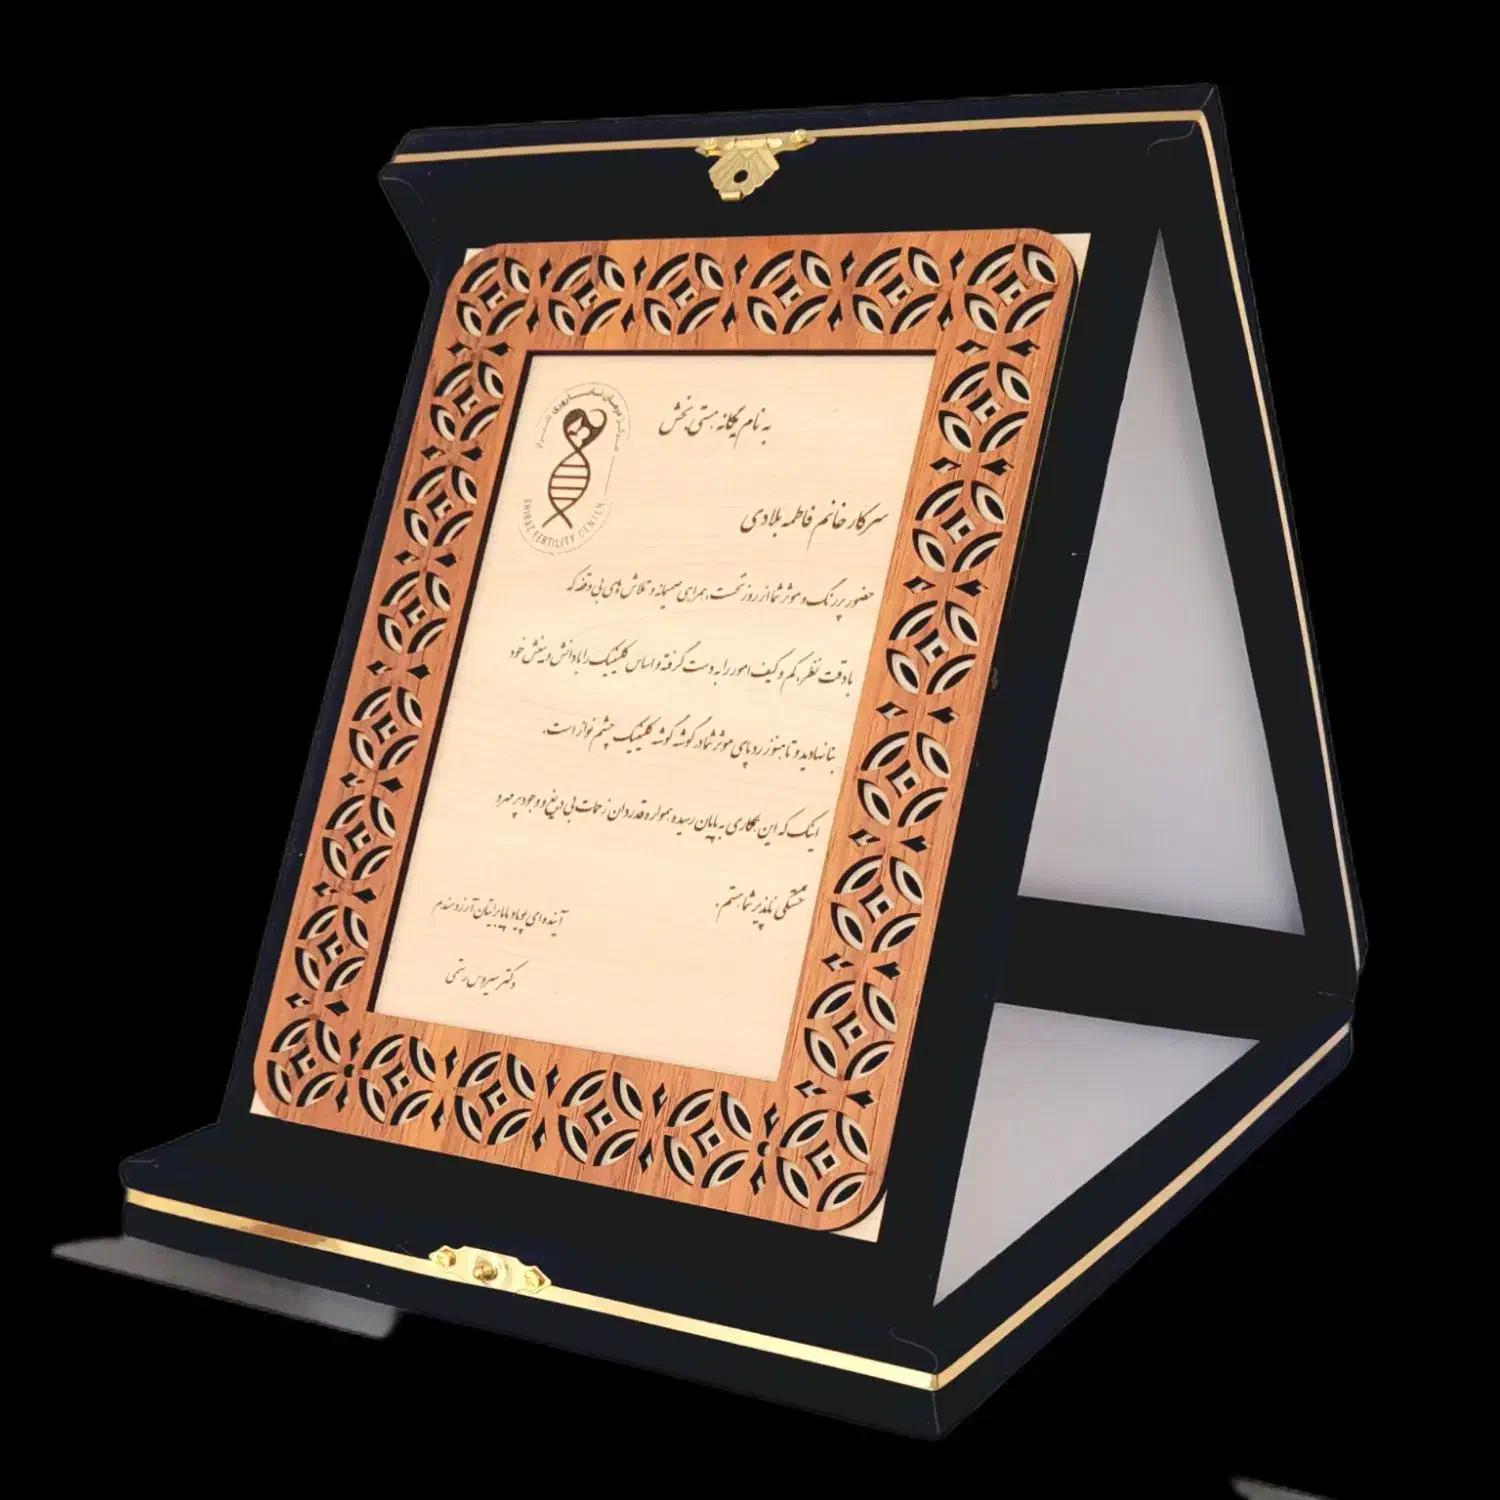 مرکز درمان ناباروری شیراز
SHIRAZ FERTILITY CENTER
به نام یگانه هستی بخش
سرکار خانم فاطمه بلادی
حضور پررنگ و موثر شما از روز نخست، همراهی صمیمانه و تلاش های بی وقفه که
با دقت نظر، کم و کیف امور را به دست گرفته و اساس کلینیک را با دانش و بینش خود
بنا نهادید و تا هنوز رد پای موثر شما در گوشه گوشه کلینیک چشم نواز است.
اینک که این همکاری به پایان رسیده همواره قدردان زحمات بی دریغ و وجود پر مهر و
خستگی ناپذیر شما هستم.
آینده ای پویا و پایا برایتان آرزومندم
دکتر سیروس رستمی